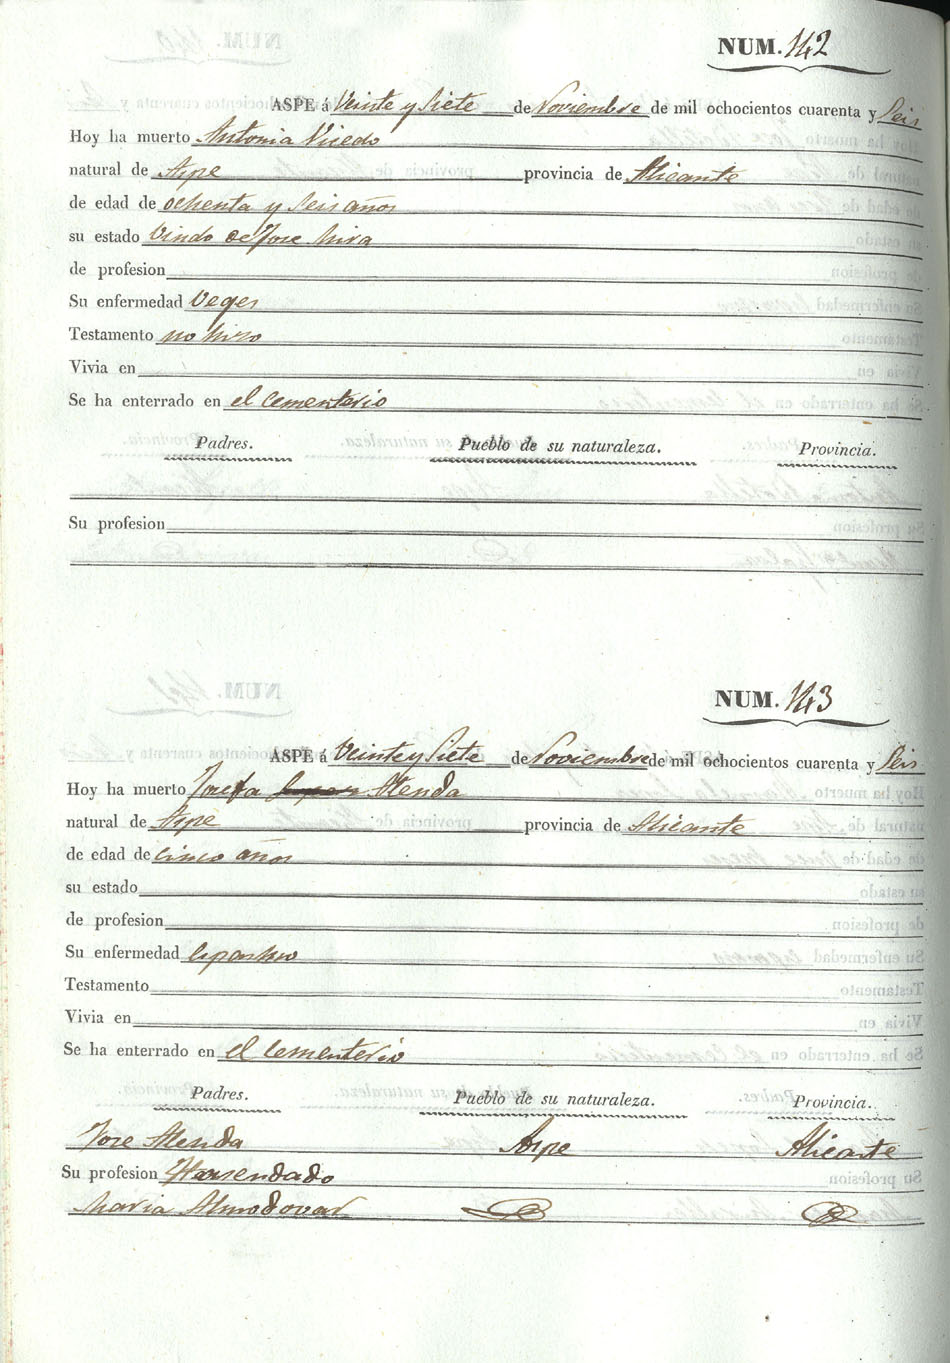 NUM. 142
ASPE á Veinte y Siete de Noviembre de mil ochocientos cuarenta y Seis
Hoy ha muerto Antonia Vicedo
natural de Aspe provincia de Alicante
de edad de ochenta y seis años
su estado Viudo de Jose Mira
de profesion
Su enfermedad Veges
Testamento no hizo
Vivia en
Se ha enterrado en el Cementerio
Padres. Pueblo de su naturaleza. Provincia.
Su profesion
NUM. 143
ASPE á Veinte y Siete de Noviembre de mil ochocientos cuarenta y Seis
Hoy ha muerto Josefa Atenda
natural de Aspe provincia de Alicante
de edad de cinco años
su estado
de profesion
Su enfermedad
Testamento
Vivia en
Se ha enterrado en el Cementerio
Padres. Pueblo de su naturaleza. Provincia.
Jose Atenda Aspe Alicante
Su profesion Hasendado
Maria Almodovar